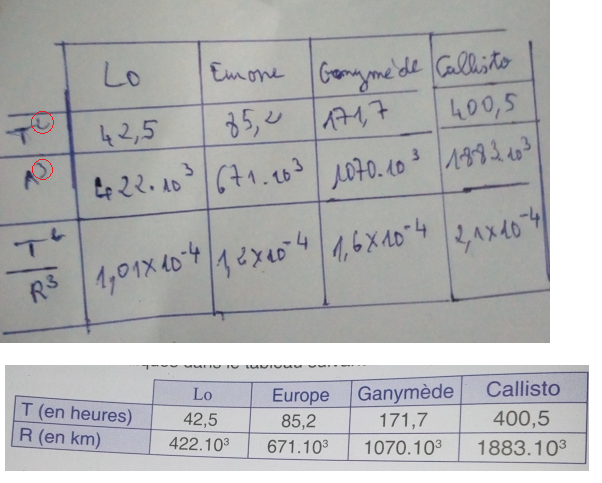 Lo Europe Ganymède Callisto
T² 42,5 85,2 171,7 400,5
R³ 422.10³ 671.10³ 1070.10³ 1883.10³
T²/R³ 1,01×10⁻⁴ 1,2×10⁻⁴ 1,6×10⁻⁴ 2,1×10⁻⁴
dans le tableau suivant
Lo Europe Ganymède Callisto
T (en heures) 42,5 85,2 171,7 400,5
R (en km) 422.10³ 671.10³ 1070.10³ 1883.10³